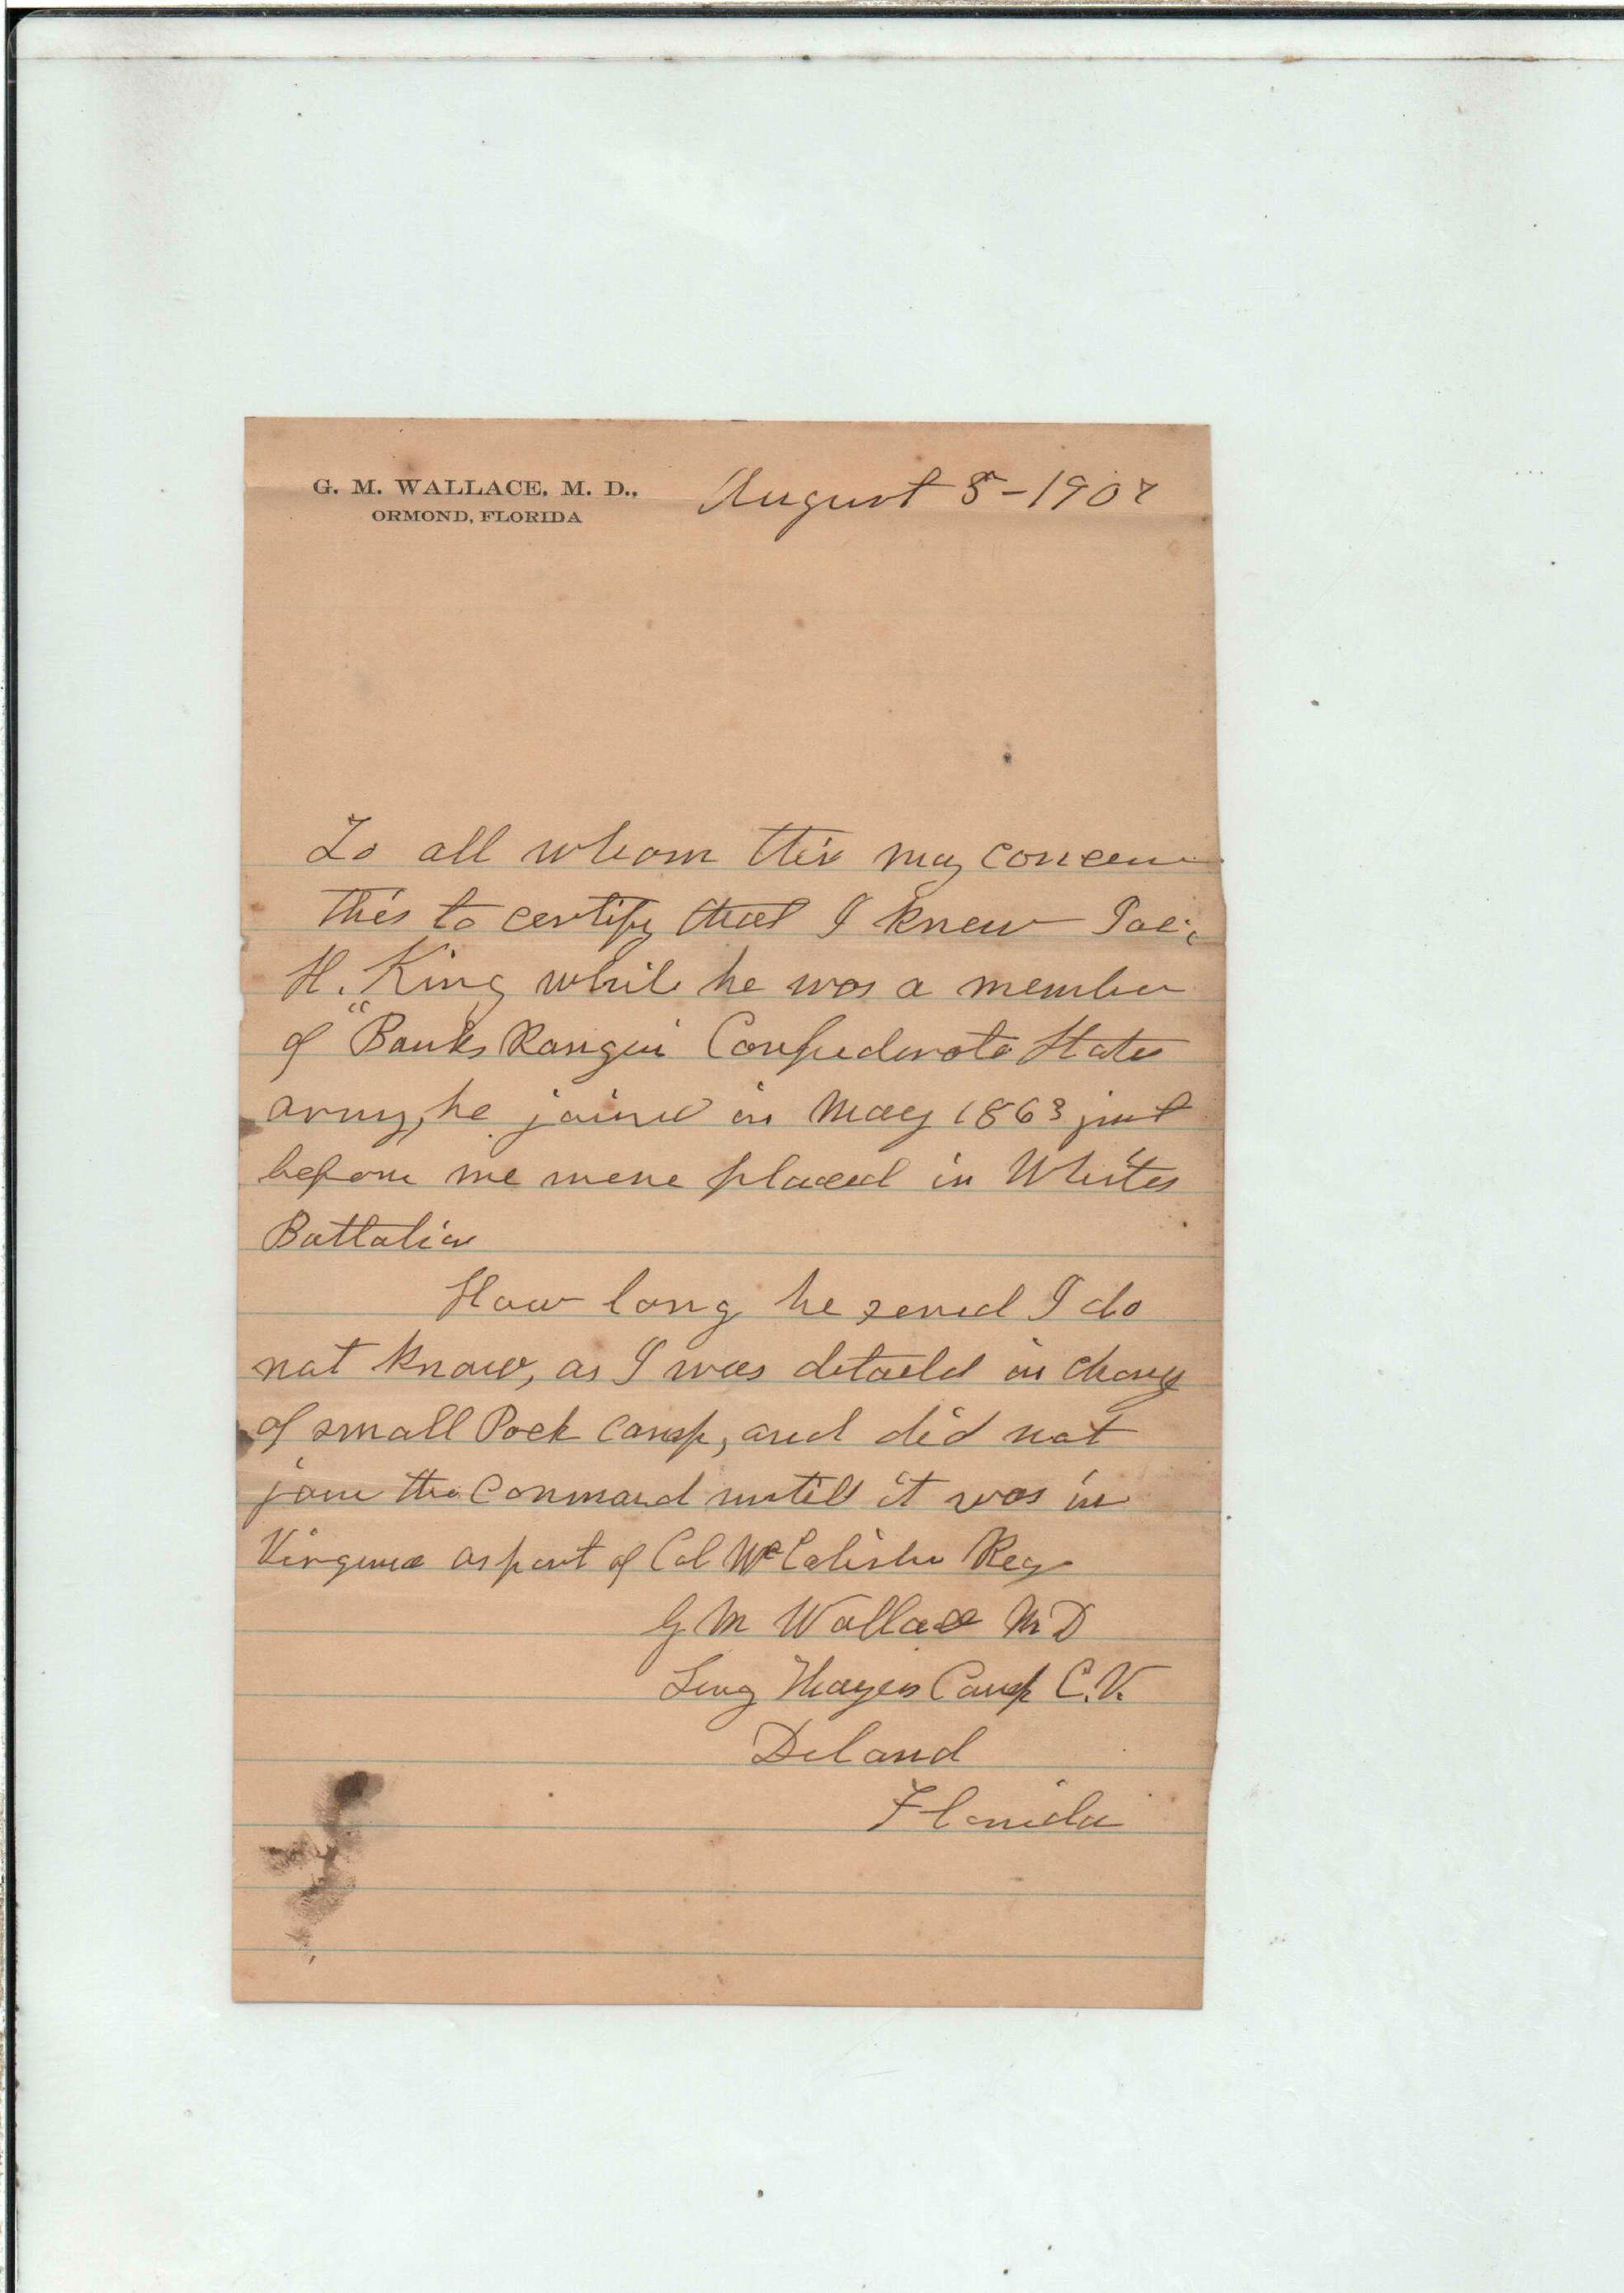 G. M. WALLACE. M. D.,
ORMOND, FLORIDA
August 5-1907
To all whom this may concern
this to certify that I knew
H. King while he was a member
of "Banks Rangers Confederate States
army, he joined in May 1863 just
before we were placed in Whites
Battalion
How long he served I do
not know, as I was detaild in charge
of small Pock camp, and did not
join the Command untill it was in
Virginia as part of Col McCalister Reg
G M Wallace M D
Surg Camp C.V.
Deland
Florida